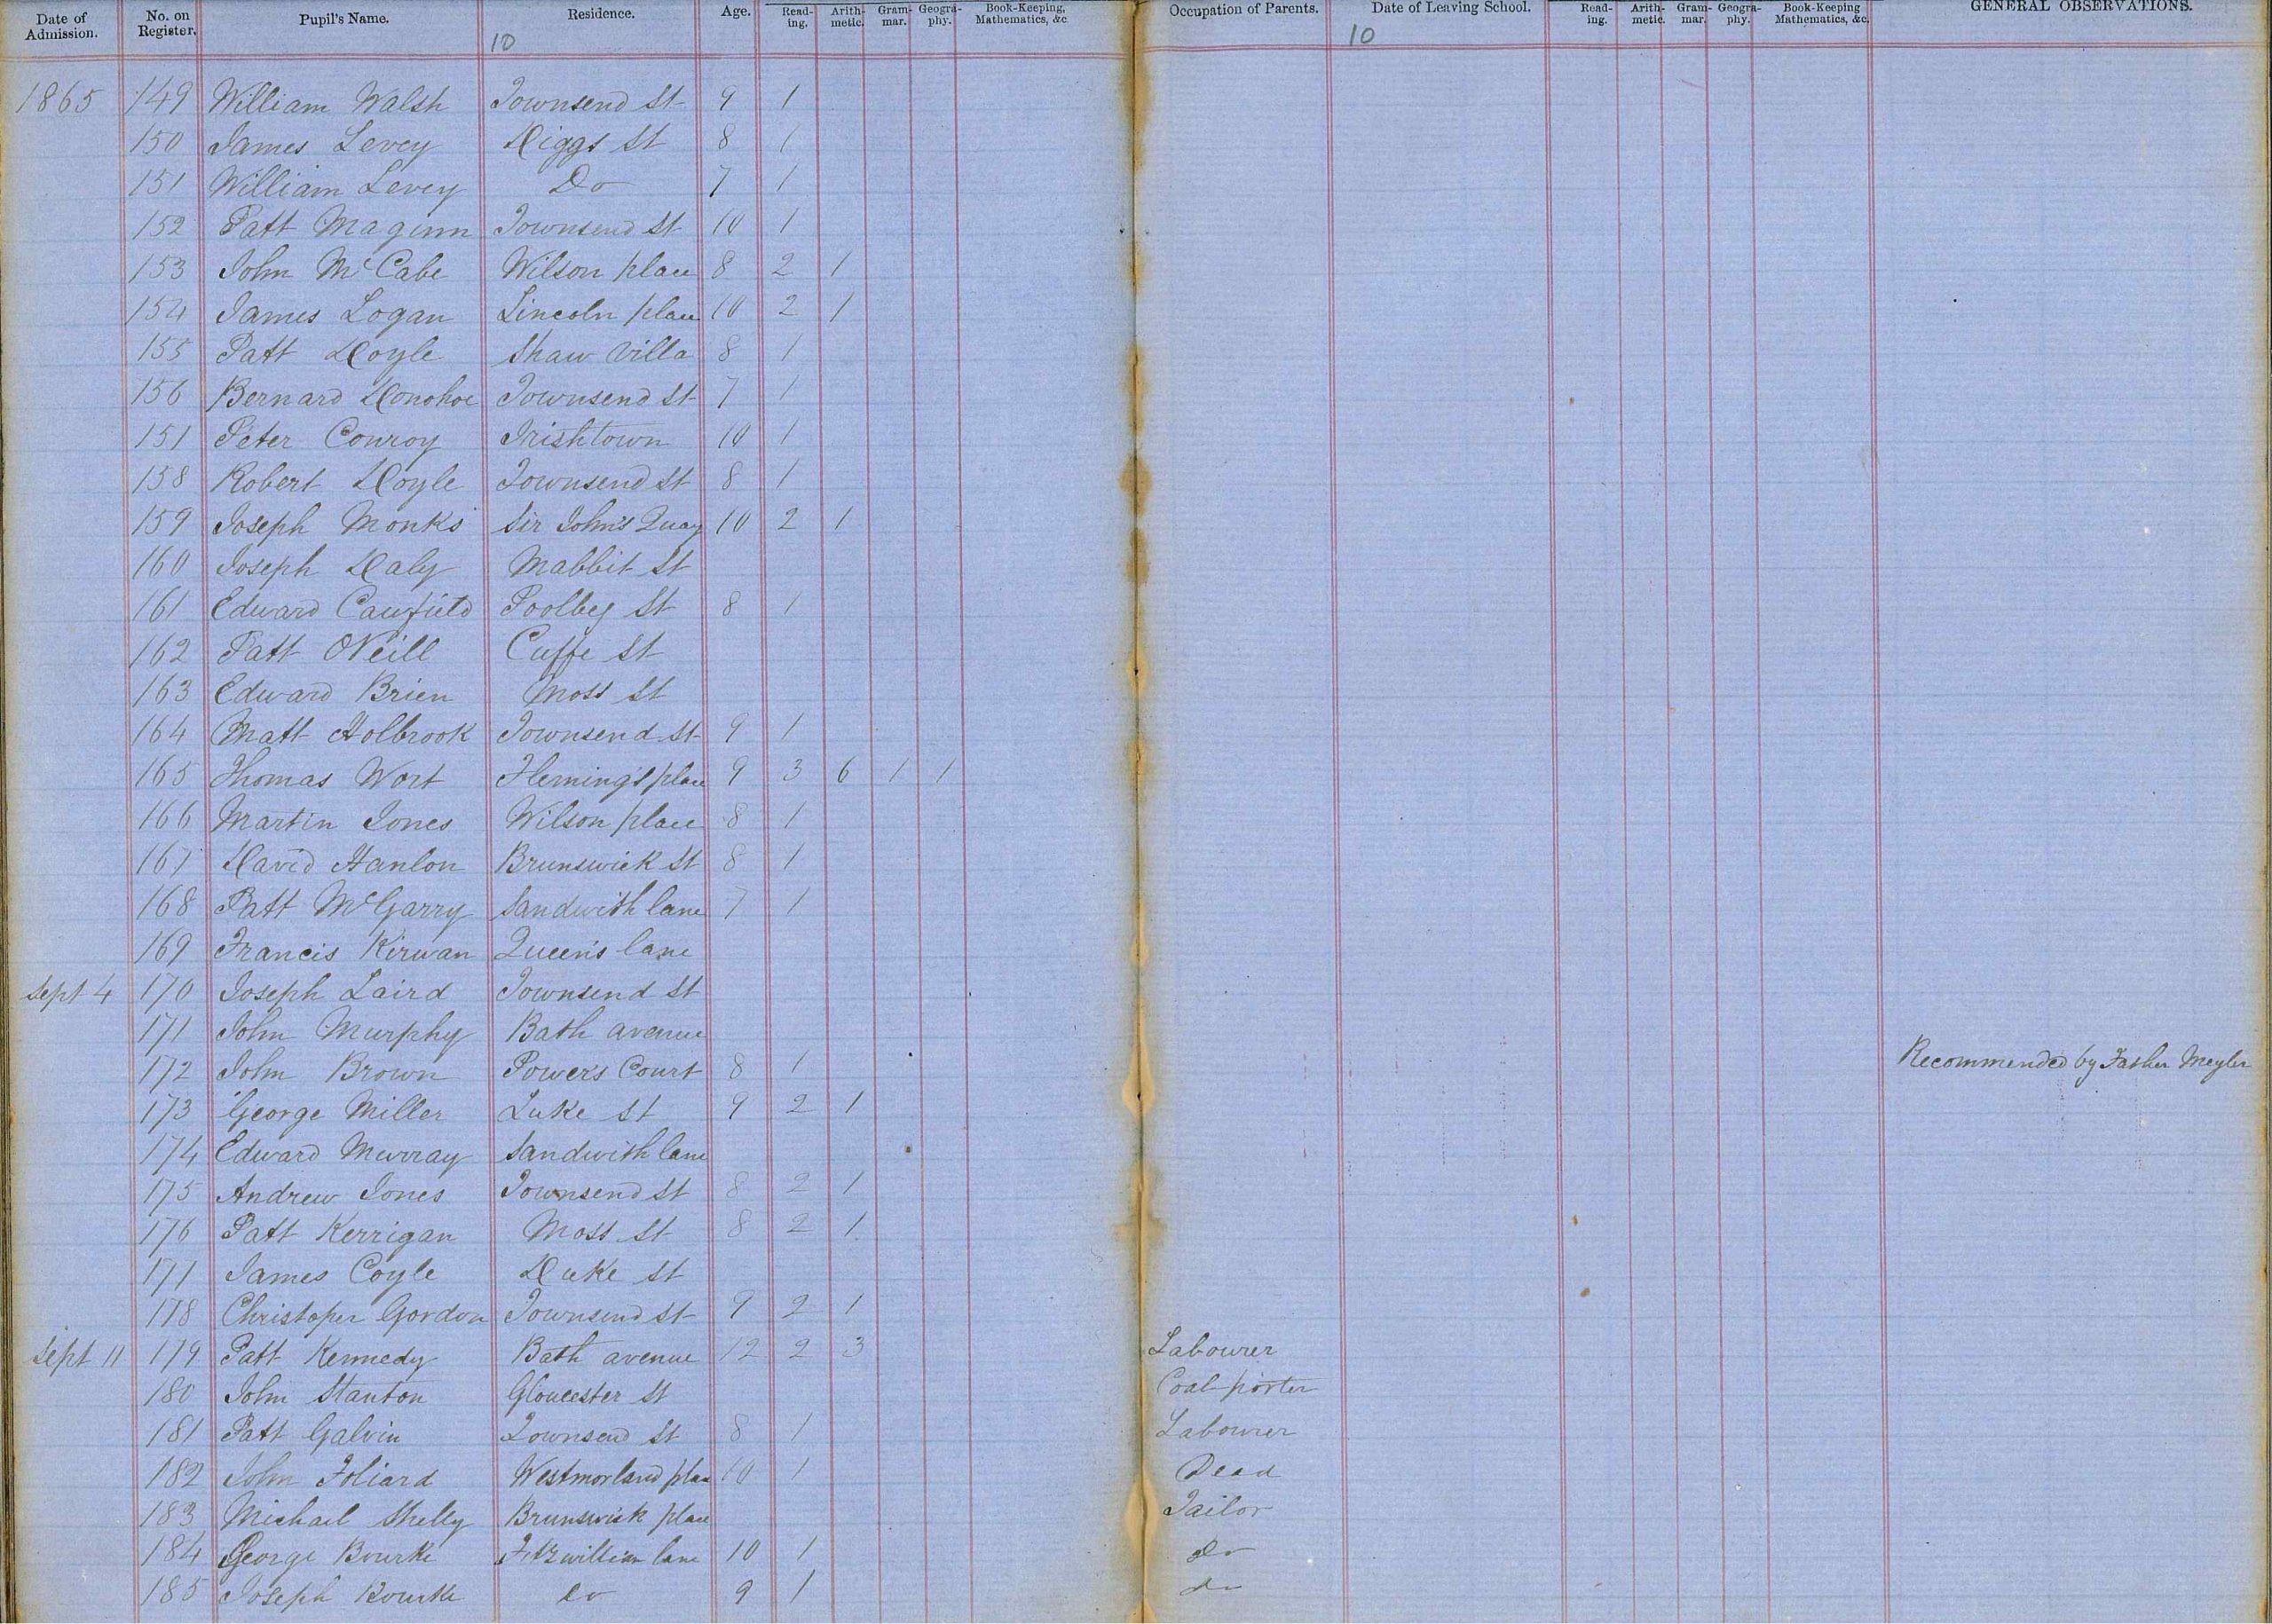 Date of Admission. No. on Register. Pupil's Name. Residence. Age. Read-ing. Arith-metic. Gram-mar. Geogra-phy. Book-Keeping, Mathematics, &c. Occupation of Parents. Date of Leaving School. Read-ing. Arith-metic. Gram-mar. Geogra-phy. Book-Keeping Mathematics, &c. GENERAL OBSERVATIONS.
10 10
1865 149 William Walsh Townsend St 9 1
150 James Levey Diggs St 8 1
151 William Levey Do 7 1
152 Patt Maginn Townsend St 10 1
153 John McCabe Wilson place 8 2 1
154 James Logan Lincoln place 10 2 1
155 Patt Doyle Shaw Villa 8 1
156 Bernard Donohoe Townsend St 7 1
157 Peter Conroy Irishtown 10 1
158 Robert Doyle Townsend St 8 1
159 Joseph Monks Sir John's Quay 10 2 1
160 Joseph Daly Mabbit St
161 Edward Caufield Poolbeg St 8 1
162 Patt O'Neill Cuffe St
163 Edward Brien Moss St
164 Matt Holbrook Townsend St 9 1
165 Thomas Wort Fleming's place 9 3 6 1 1
166 Martin Jones Wilson place 8 1
167 David Hanlon Brunswick St 8 1
168 Patt McGarry Sandwith lane 7 1
169 Francis Kirwan Queen's lane
Sept 4 170 Joseph Laird Townsend St
171 John Murphy Bath avenue
172 John Brown Power's Court 8 1 Recommended by Father Meyler
173 George Miller Luke St 9 2 1
174 Edward Murray Sandwith lane
175 Andrew Jones Townsend St 8 2 1
176 Patt Kerrigan Moss St 8 2 1
177 James Coyle Duke St
178 Christoper Gordon Townsend St 9 2 1
Sept 11 179 Patt Kennedy Bath avenue 12 2 3 Labourer
180 John Stanton Gloucester St Coal-porter
181 Patt Galvin Townsend St 8 1 Labourer
182 John Foliard Westmorland place 10 1 Dead
183 Michael Shelly Brunswick place Tailor
184 George Bourke Fitzwilliam lane 10 1 do
185 Joseph Bourke do 9 1 do